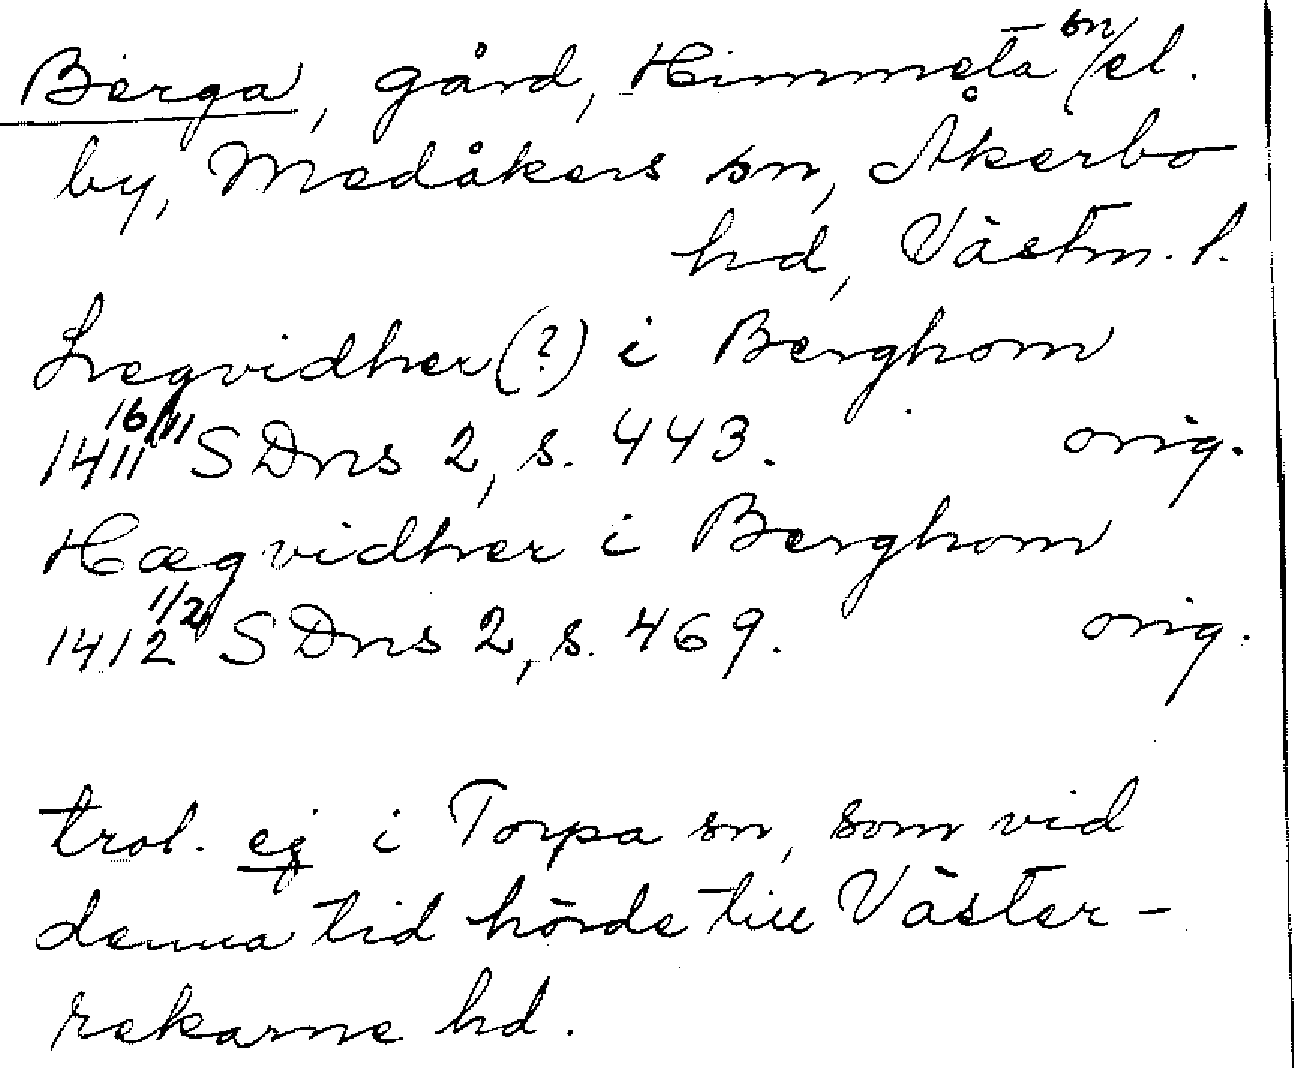 Berga, gård, Himmeta sn/el.
by, Medåkers sn, Åkerbo
hd, Västm. l.
Lregvidher (?) i Berghom
1411 16/11 SDns 2, s. 443. orig.
Hægvidher i Berghom
1412 1/2 SDns 2, s. 469. orig.
trol. ej i Torpa sn, som vid
denna tid hörde till Väster-
rekarne hd.